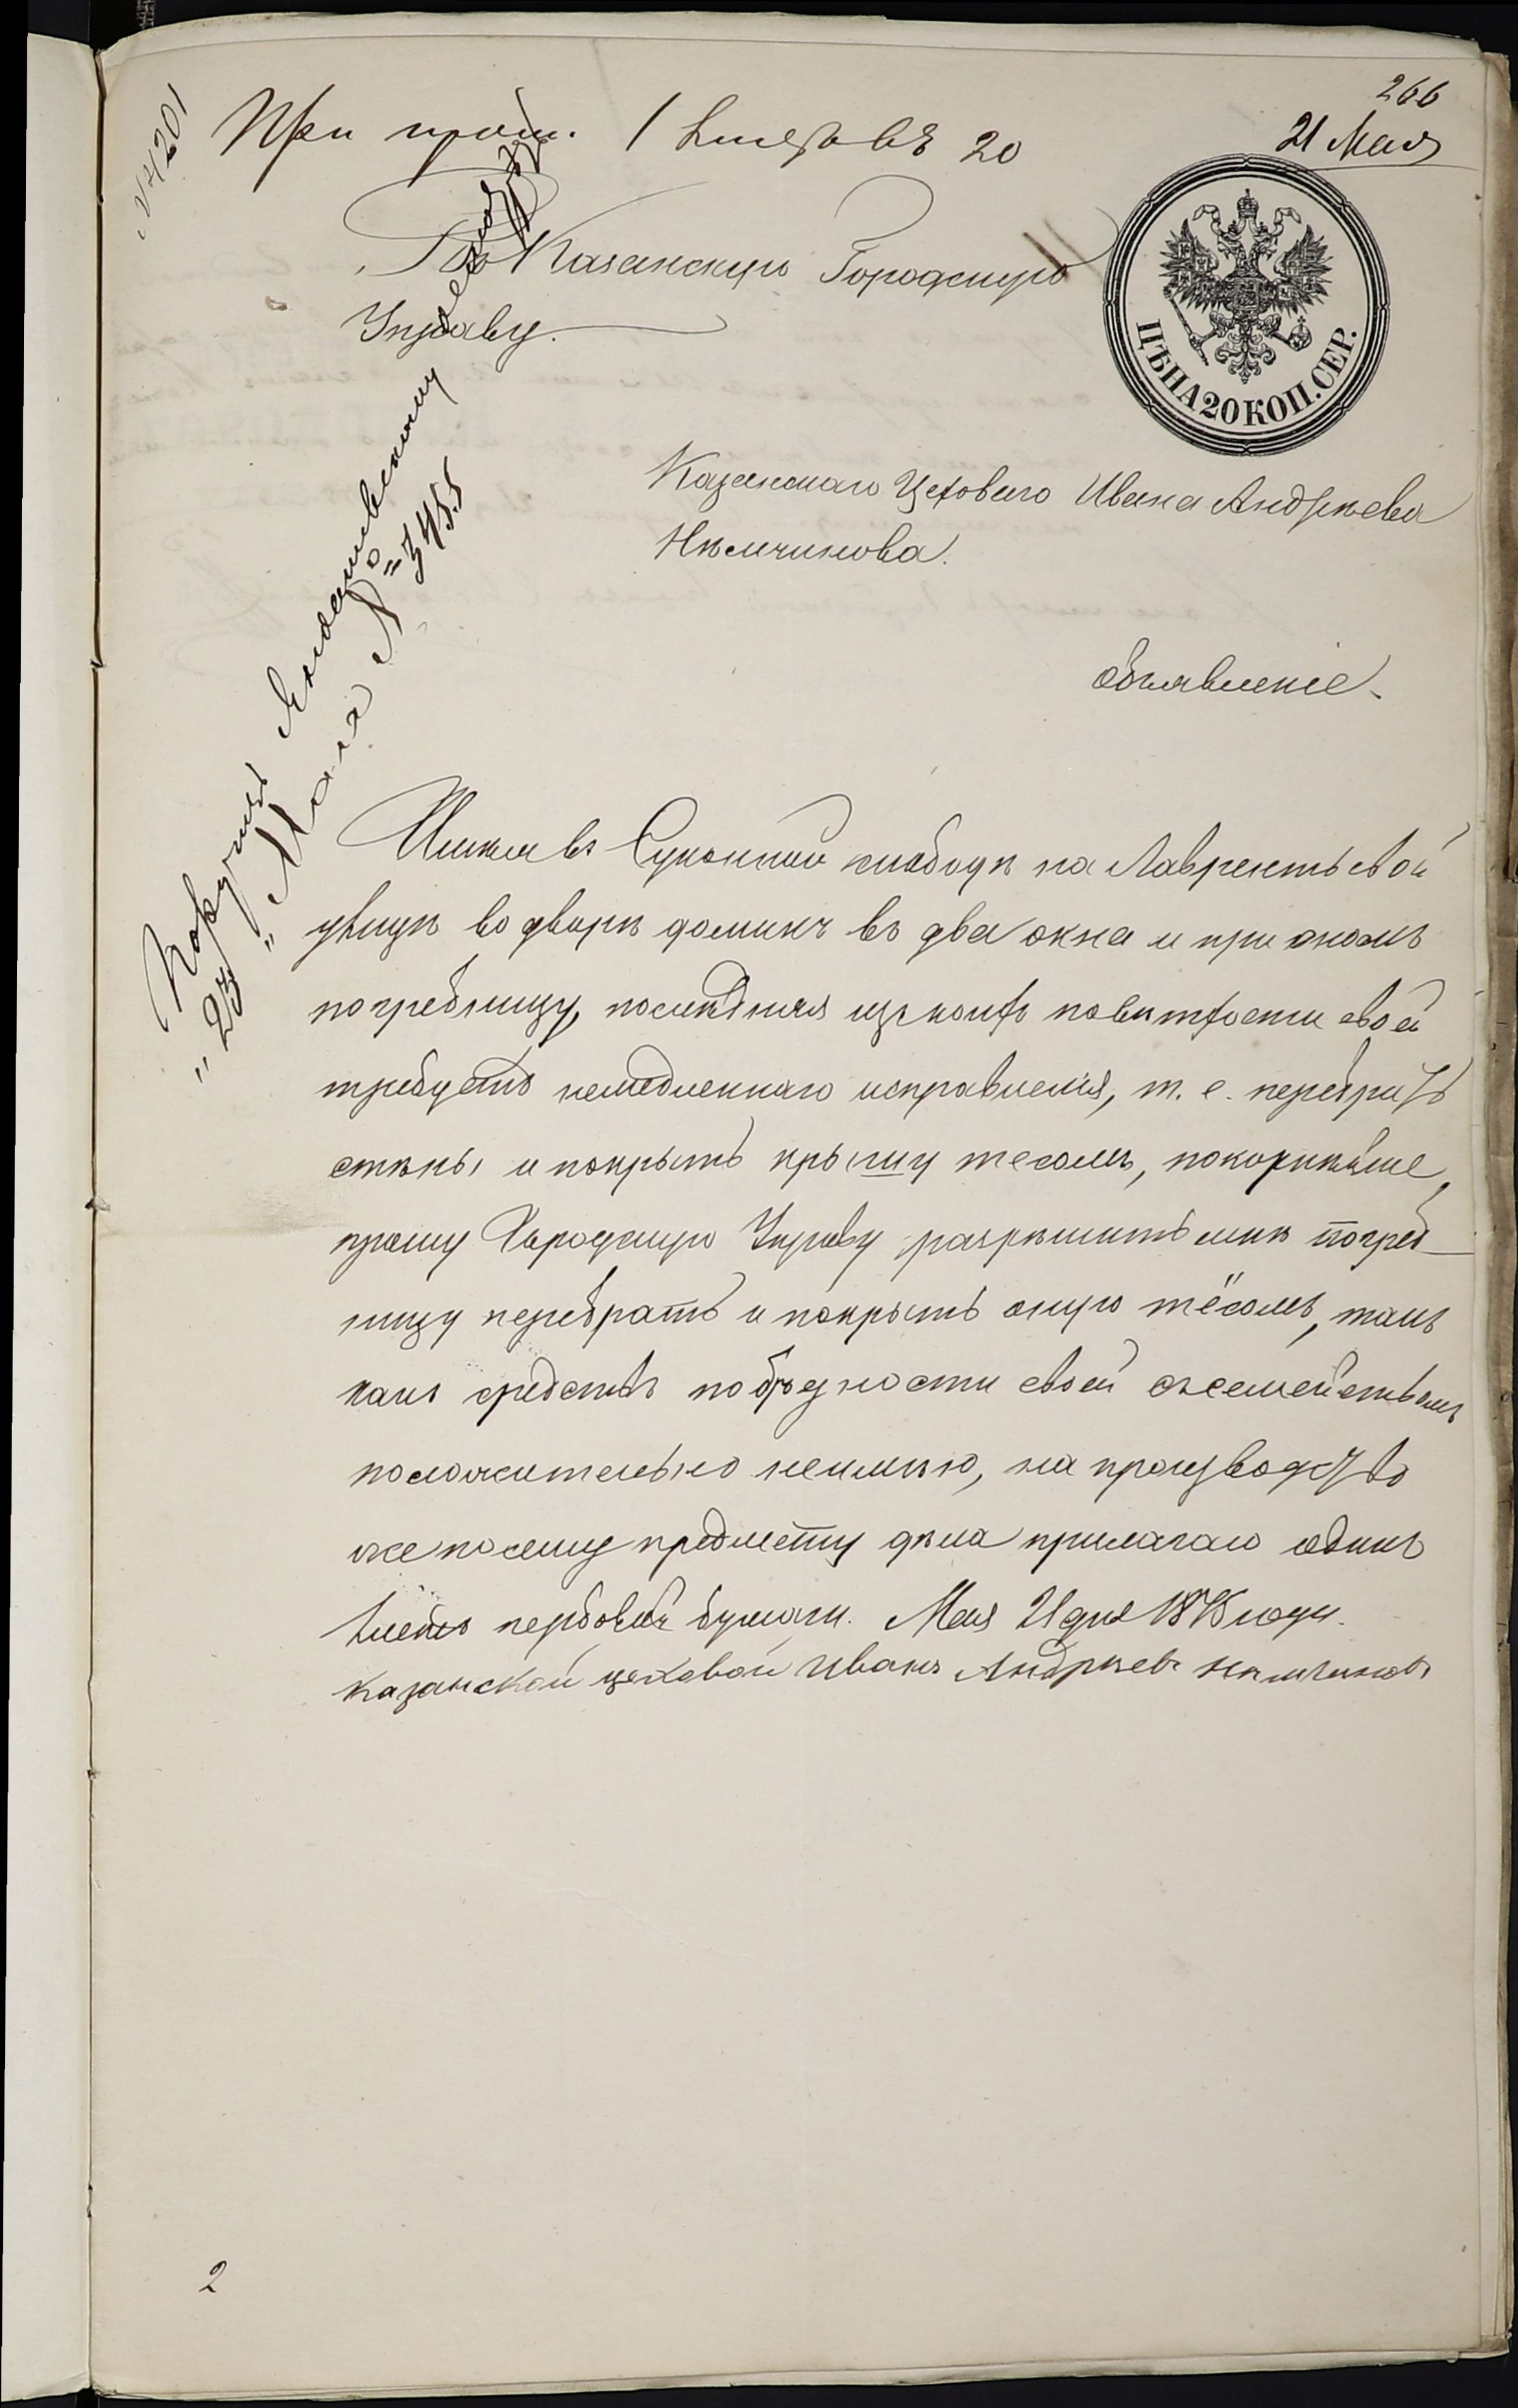 266
21 Мая
№ 4201
При прош. 1 листъ въ 20
Въ Казанскую Городскую
Управу.
ЦѢНА 20 КОП. СЕР.
Казанскаго Цеховаго Ивана Андрѣева
Нѣмчинова.
объявленіе.
Поручить
"23" Мая № 3455
Имѣя въ Суконной слободѣ на Лаврентьевой
улицѣ во дворѣ домикъ въ два окна и при ономъ
погребницу, послѣдняя изъ коихъ по ветхости своей
требуетъ немедленнаго исправленія, т. е. перебрать
стѣны и покрыть крышу тесомъ, покорнѣйше
прошу Городскую Управу разрѣшить мнѣ погреб-
ницу перебрать и покрыть оную тёсомъ, такъ
какъ средствъ по бѣдности своей съ семействомъ
положительно неимѣю, на производство
же по сему предмету дѣла прилагаю одинъ
листъ гербовой бумаги. Мая 21 дня 1875 года.
казанской цеховой Иванъ Андрѣевъ нѣмчиновъ
2